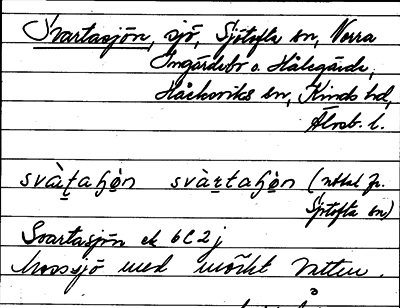 Svartasjön, sjö, Sjötofta sn, Norra
Ingärdebo o. Hålegärde,
Håcksviks sn, Kinds hd,
Älvsb. l.
svàṟtaɧọ̀n svàṟtaɧọ̀n (uttal fr.
Sjötofta sn)
Svartasjön ek 6C2j
Mossjö med mörkt vatten.